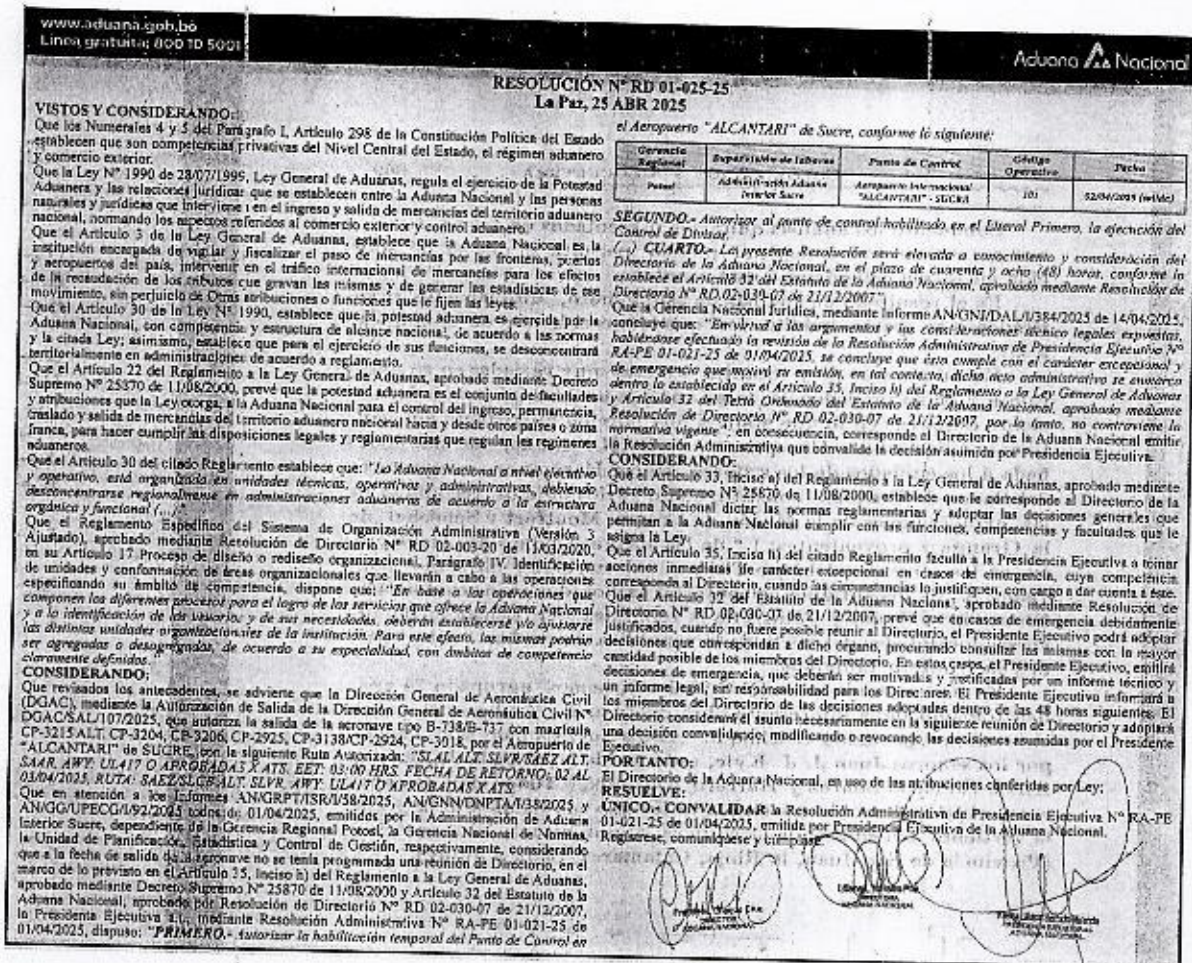 www.aduana.gob.bo
Línea gratuita: 800 10 5001
Aduana Nacional
RESOLUCIÓN N° RD 01-025-25
La Paz, 25 ABR 2025
VISTOS Y CONSIDERANDO:
Que los Numerales 4 y 5 del Parágrafo I, Artículo 298 de la Constitución Política del Estado
establecen que son competencias privativas del Nivel Central del Estado, el régimen aduanero
y comercio exterior.
Que la Ley N° 1990 de 28/07/1995, Ley General de Aduanas, regula el ejercicio de la Potestad
Aduanera y las relaciones jurídicas que se establecen entre la Aduana Nacional y las personas
naturales y jurídicas que intervienen en el ingreso y salida de mercancías del territorio aduanero
nacional, normando los aspectos referidos al comercio exterior y control aduanero.
Que el Artículo 3 de la Ley General de Aduanas, establece que la Aduana Nacional es la
institución encargada de vigilar y fiscalizar el paso de mercancías por las fronteras, puertos
y aeropuertos del país, intervenir en el tráfico internacional de mercancías para los efectos
de la recaudación de los tributos que gravan las mismas y de generar las estadísticas de ese
movimiento, sin perjuicio de Otras atribuciones o funciones que le fijen las leyes.
Que el Artículo 30 de la Ley N° 1990, establece que la potestad aduanera es ejercida por la
Aduana Nacional, con competencia y estructura de alcance nacional, de acuerdo a las normas
y la citada Ley; asimismo, establece que para el ejercicio de sus funciones, se desconcentrará
territorialmente en administraciones de acuerdo a reglamento.
Que el Artículo 22 del Reglamento a la Ley General de Aduanas, aprobado mediante Decreto
Supremo N° 25870 de 11/08/2000, prevé que la potestad aduanera es el conjunto de facultades
y atribuciones que la Ley otorga, a la Aduana Nacional para el control del ingreso, permanencia,
traslado y salida de mercancías del territorio aduanero nacional hacia y desde otros países o zona
franca, para hacer cumplir las disposiciones legales y reglamentarias que regulan los regímenes
aduaneros.
Que el Artículo 30 del citado Reglamento establece que: "La Aduana Nacional a nivel ejecutivo
y operativo, está organizada en unidades técnicas, operativas y administrativas, debiendo
desconcentrarse regionalmente en administraciones aduaneras de acuerdo a la estructura
orgánica y funcional (...)".
Que el Reglamento Específico del Sistema de Organización Administrativa (Versión 3
Ajustado), aprobado mediante Resolución de Directorio N° RD 02-003-20 de 11/03/2020,
en su Artículo 17 Proceso de diseño o rediseño organizacional, Parágrafo IV. Identificación
de unidades y conformación de áreas organizacionales que llevarán a cabo a las operaciones
especificando su ámbito de competencia, dispone que: "En base a las operaciones que
componen los diferentes procesos para el logro de los servicios que ofrece la Aduana Nacional
y a la identificación de los usuarios y de sus necesidades, deberán establecerse y/o ajustarse
las distintas unidades organizacionales de la institución. Para este efecto, las mismas podrán
ser agregadas o desagregadas, de acuerdo a su especialidad, con ámbitos de competencia
claramente definidos."
CONSIDERANDO:
Que revisados los antecedentes, se advierte que la Dirección General de Aeronáutica Civil
(DGAC), mediante la Autorización de Salida de la Dirección General de Aeronáutica Civil N°
DGAC/SAL/107/2025, que autoriza la salida de la aeronave tipo B-738/B-737 con matrícula
CP-3215 ALT. CP-3204, CP-3206, CP-2925, CP-3138/CP-2924, CP-3018, por el Aeropuerto de
"ALCANTARI" de SUCRE, con la siguiente Ruta Autorizada: "SLAL ALT. SLVR/SAEZ ALT.
SAAR, AWY: UL417 O APROBADAS X ATS. EET: 03:00 HRS. FECHA DE RETORNO: 02 AL
03/04/2025, RUTA: SAEZ/SLCB ALT. SLVR, AWY: UL417 O APROBADAS X ATS."
Que en atención a los Informes AN/GRPT/ISR/I/58/2025, AN/GNN/DNPTA/I/38/2025 y
AN/GG/UPECG/I/92/2025 todos de 01/04/2025, emitidos por la Administración de Aduana
Interior Sucre, dependiente de la Gerencia Regional Potosí, la Gerencia Nacional de Normas,
la Unidad de Planificación, Estadística y Control de Gestión, respectivamente, considerando
que a la fecha de salida de la aeronave no se tenía programada una reunión de Directorio, en el
marco de lo previsto en el Artículo 35, Inciso h) del Reglamento a la Ley General de Aduanas,
aprobado mediante Decreto Supremo N° 25870 de 11/08/2000 y Artículo 32 del Estatuto de la
Aduana Nacional, aprobado por Resolución de Directorio N° RD 02-030-07 de 21/12/2007,
la Presidenta Ejecutiva a.i., mediante Resolución Administrativa N° RA-PE 01-021-25 de
01/04/2025, dispuso: "PRIMERO.- Autorizar la habilitación temporal del Punto de Control en
el Aeropuerto "ALCANTARI" de Sucre, conforme lo siguiente:
Gerencia Regional Supervisión de labores Punto de Control Código Operativo Fecha
Potosí Administración Aduana Interior Sucre Aeropuerto Internacional "ALCANTARI" - SUCRE 101 02/04/2025 (salida)
SEGUNDO.- Autorizar al punto de control habilitado en el Literal Primero, la ejecución del
Control de Divisas.
(...) CUARTO.- La presente Resolución será elevada a conocimiento y consideración del
Directorio de la Aduana Nacional, en el plazo de cuarenta y ocho (48) horas, conforme lo
establece el Artículo 32 del Estatuto de la Aduana Nacional, aprobado mediante Resolución de
Directorio N° RD 02-030-07 de 21/12/2007".
Que la Gerencia Nacional Jurídica, mediante Informe AN/GNJ/DAL/I/384/2025 de 14/04/2025,
concluye que: "En virtud a los argumentos y las consideraciones técnico legales expuestas,
habiéndose efectuado la revisión de la Resolución Administrativa de Presidencia Ejecutiva N°
RA-PE 01-021-25 de 01/04/2025, se concluye que ésta cumple con el carácter excepcional y
de emergencia que motivó su emisión, en tal contexto, dicho acto administrativo se enmarca
dentro lo establecido en el Artículo 35, Inciso h) del Reglamento a la Ley General de Aduanas
y Artículo 32 del Texto Ordenado del Estatuto de la Aduana Nacional, aprobado mediante
Resolución de Directorio N° RD 02-030-07 de 21/12/2007, por lo tanto, no contraviene la
normativa vigente"; en consecuencia, corresponde al Directorio de la Aduana Nacional emitir
la Resolución Administrativa que convalide la decisión asumida por Presidencia Ejecutiva.
CONSIDERANDO:
Que el Artículo 33, Inciso a) del Reglamento a la Ley General de Aduanas, aprobado mediante
Decreto Supremo N° 25870 de 11/08/2000, establece que le corresponde al Directorio de la
Aduana Nacional dictar las normas reglamentarias y adoptar las decisiones generales que
permitan a la Aduana Nacional cumplir con las funciones, competencias y facultades que le
asigna la Ley.
Que el Artículo 35, Inciso h) del citado Reglamento faculta a la Presidencia Ejecutiva a tomar
acciones inmediatas de carácter excepcional en casos de emergencia, cuya competencia
corresponda al Directorio, cuando las circunstancias lo justifiquen, con cargo a dar cuenta a éste.
Que el Artículo 32 del Estatuto de la Aduana Nacional, aprobado mediante Resolución de
Directorio N° RD 02-030-07 de 21/12/2007, prevé que en casos de emergencia debidamente
justificados, cuando no fuere posible reunir al Directorio, el Presidente Ejecutivo podrá adoptar
decisiones que correspondan a dicho órgano, procurando consultar las mismas con la mayor
cantidad posible de los miembros del Directorio. En estos casos, el Presidente Ejecutivo, emitirá
decisiones de emergencia, que deberán ser motivadas y justificadas por un informe técnico y
un informe legal, sin responsabilidad para los Directores. El Presidente Ejecutivo informará a
los miembros del Directorio de las decisiones adoptadas dentro de las 48 horas siguientes. El
Directorio considerará el asunto necesariamente en la siguiente reunión de Directorio y adoptará
una decisión convalidando, modificando o revocando las decisiones asumidas por el Presidente
Ejecutivo.
POR TANTO:
El Directorio de la Aduana Nacional, en uso de las atribuciones conferidas por Ley;
RESUELVE:
ÚNICO.- CONVALIDAR la Resolución Administrativa de Presidencia Ejecutiva N° RA-PE
01-021-25 de 01/04/2025, emitida por Presidencia Ejecutiva de la Aduana Nacional.
Regístrese, comuníquese y cúmplase.
DIRECTOR
ADUANA NACIONAL
DIRECTORA
ADUANA NACIONAL
ADUANA NACIONAL